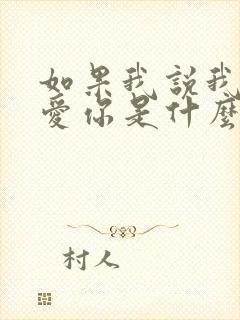 如果我說我
愛你是什麼
村人